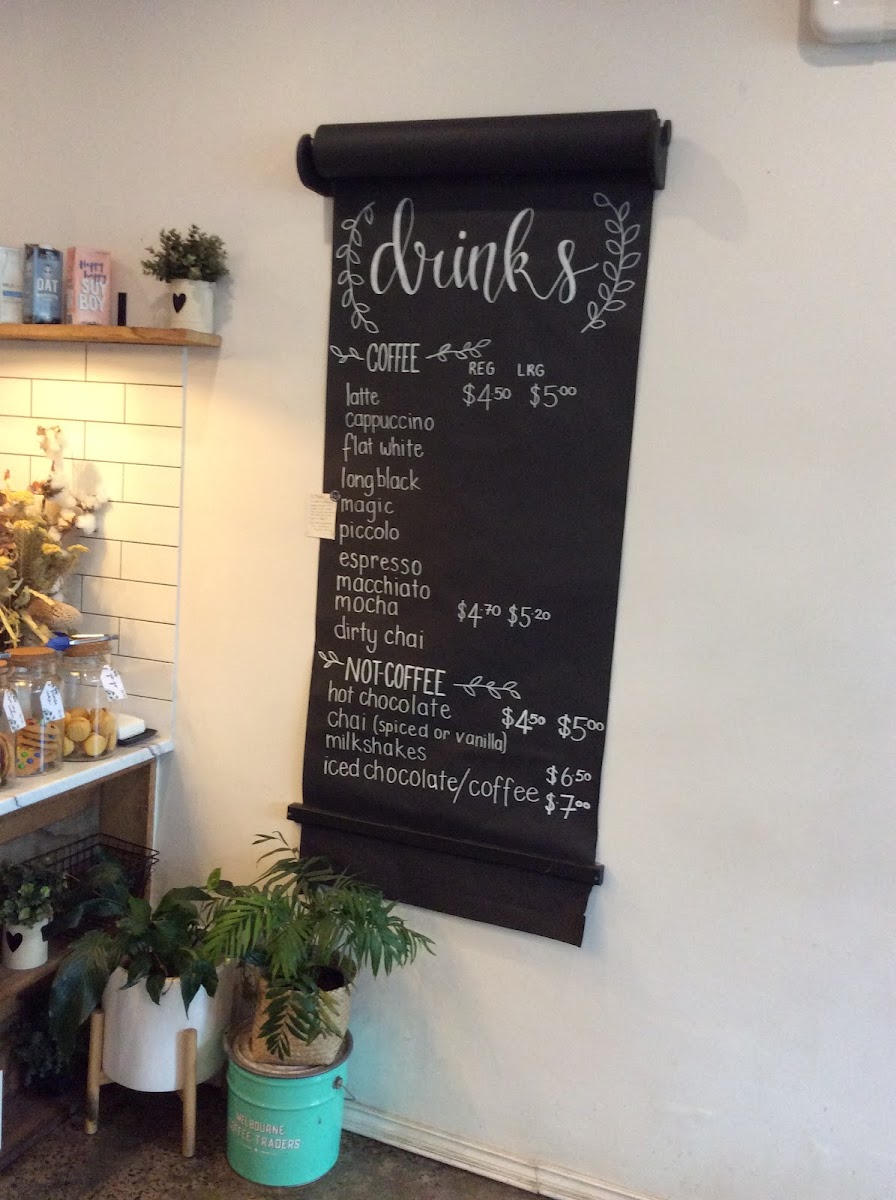 drinks
COFFEE
REG LRG
latte $4.50 $5.00
cappuccino
flat white
long black
magic
piccolo
espresso
macchiato
mocha $4.70 $5.20
dirty chai
NOT-COFFEE
hot chocolate $4.50 $5.00
chai (spiced or vanilla)
milkshakes $6.50
iced chocolate/coffee $7.00
OAT
Happy Happy
SOY
BOY
MELBOURNE
COFFEE TRADERS